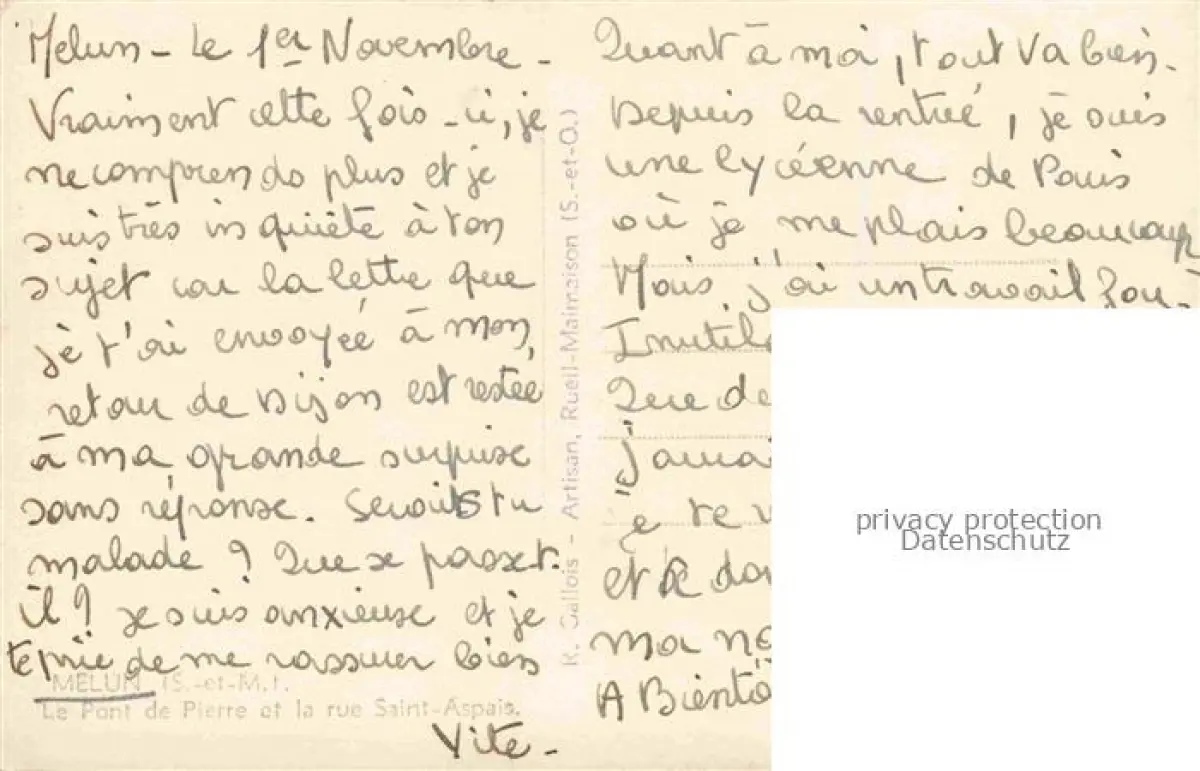 Melun - Le 1er Novembre -
Vraiment cette fois-ci, je
ne comprends plus et je
suis très inquiète à ton
sujet car la lettre que
je t'ai envoyée à mon
retour de Dijon est restée
à ma grande surprise
sans réponse. Serais tu
malade ? Que se passe t-
il ? Je suis anxieuse et je
te prie de me rassurer bien
Vite -
MELUN (S.-et-M.).
Le Pont de Pierre et la rue Saint-Aspais.
R. Gallois - Artisan, Rueil-Malmaison (S.-et-O.)
Quant à moi, tout va bien.
Depuis la rentrée, je suis
une lycéenne de Paris
où je me plais beaucoup
Mais j'ai un travail fou.
Inutil
Que de
J'aurai
je te
et te
ma
A Bientô
privacy protection
Datenschutz